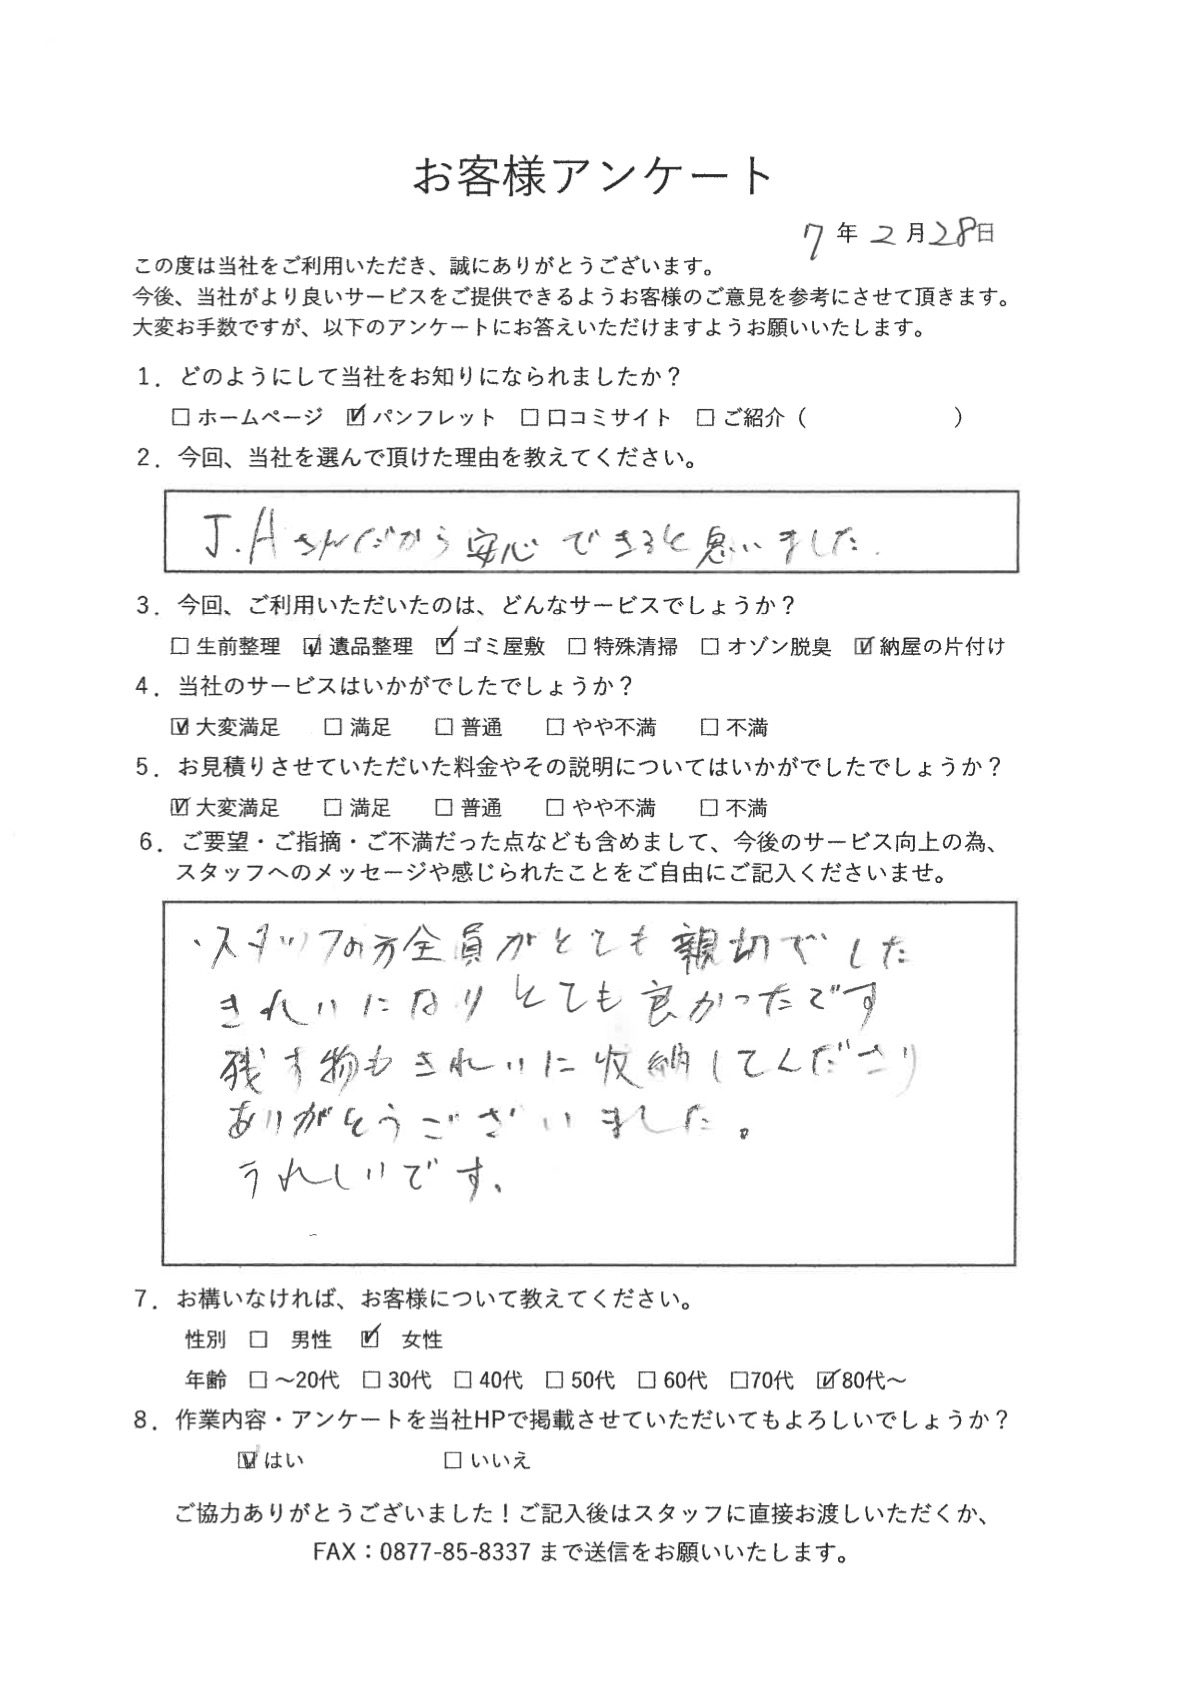 お客様アンケート
7年2月28日
この度は当社をご利用いただき、誠にありがとうございます。
今後、当社がより良いサービスをご提供できるようお客様のご意見を参考にさせて頂きます。
大変お手数ですが、以下のアンケートにお答えいただけますようお願いいたします。
1．どのようにして当社をお知りになられましたか？
□ホームページ ☑パンフレット □口コミサイト □ご紹介（　　　　　　　）
2．今回、当社を選んで頂けた理由を教えてください。
J.Aさんだから安心できると思いました.
3．今回、ご利用いただいたのは、どんなサービスでしょうか？
□生前整理 ☑遺品整理 ☑ゴミ屋敷 □特殊清掃 □オゾン脱臭 ☑納屋の片付け
4．当社のサービスはいかがでしたでしょうか？
☑大変満足 □満足 □普通 □やや不満 □不満
5．お見積りさせていただいた料金やその説明についてはいかがでしたでしょうか？
☑大変満足 □満足 □普通 □やや不満 □不満
6．ご要望・ご指摘・ご不満だった点なども含めまして、今後のサービス向上の為、
スタッフへのメッセージや感じられたことをご自由にご記入くださいませ。
・スタッフの方全員がとても親切でした
きれいになりとても良かったです
残す物もきれいに収納してくださり
ありがとうございました。
うれしいです、
7．お構いなければ、お客様について教えてください。
性別 □ 男性 ☑ 女性
年齢 □～20代 □30代 □40代 □50代 □60代 □70代 ☑80代～
8．作業内容・アンケートを当社HPで掲載させていただいてもよろしいでしょうか？
☑はい □いいえ
ご協力ありがとうございました！ご記入後はスタッフに直接お渡しいただくか、
FAX：0877-85-8337 まで送信をお願いいたします。